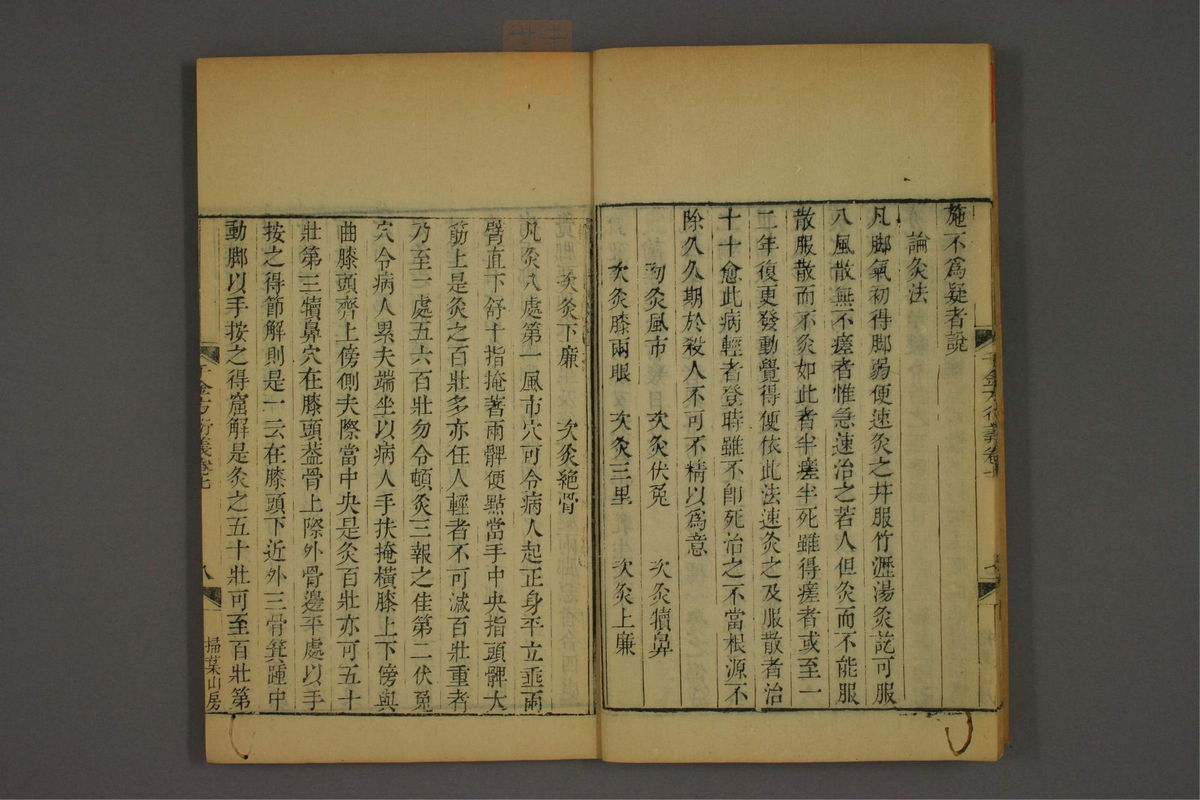 施不爲疑者說
論灸法
凡脚氣初得脚弱便速灸之并服竹瀝湯灸訖可服
八風散無不瘥者惟急速治之若人但灸而不能服
散服散而不灸如此者半瘥半死雖得瘥者或至一
二年復更發動覺得便依此法速灸之及服散者治
十十愈此病輕者登時雖不卽死治之不當根源不
除久久期於殺人不可不精以爲意
初灸風市 次灸伏兔 次灸犢鼻
次灸膝兩眼 次灸三里 次灸上廉
次灸下廉 次灸絕骨
凡灸八處第一風市穴可令病人起正身平立垂兩
臂直下舒十指掩著兩髀便點當手中央指頭髀大
筋上是灸之百壯多亦任人輕者不可減百壯重者
乃至一處五六百壯勿令頓灸三報之佳第二伏兔
穴令病人累夫端坐以病人手扶掩橫膝上下傍與
曲膝頭齊上傍側夫際當中央是灸百壯亦可五十
壯第三犢鼻穴在膝頭蓋骨上際外骨邊平處以手
按之得節解則是一云在膝頭下近外三骨箕踵中
動脚以手按之得窟解是灸之五十壯可至百壯第
千金方衍義卷七
八
掃葉山房